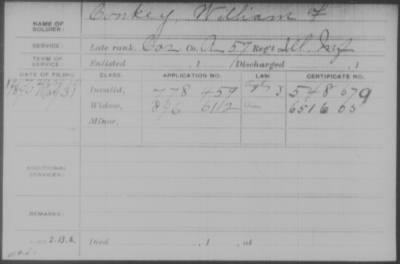 NAME OF SOLDIER: Conkey, William F
SERVICE: Late rank, Cor Co. A 57 Reg't Ill. Inf
TERM OF SERVICE: Enlisted , 1 / Discharged , 1
DATE OF FILING. CLASS. APPLICATION NO. LAW CERTIFICATE NO.
Invalid, 778 459 548 679
Widow, 836 6112 6516 65
Minor,
ADDITIONAL SERVICES:
REMARKS:
Died , 1 , at